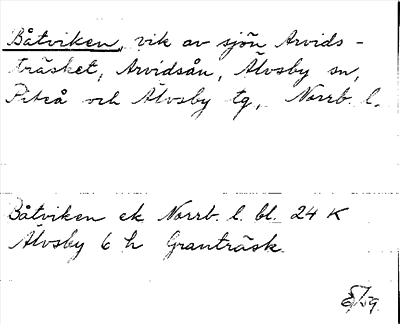 Båtviken, vik av sjön Arvids-
träsket, Arvidsån, Älvsby sn,
Piteå och Älvsby tg, Norrb. l.
Båtviken ek Norrb. l. bl. 24 K
Älvsby 6 h Granträsk.